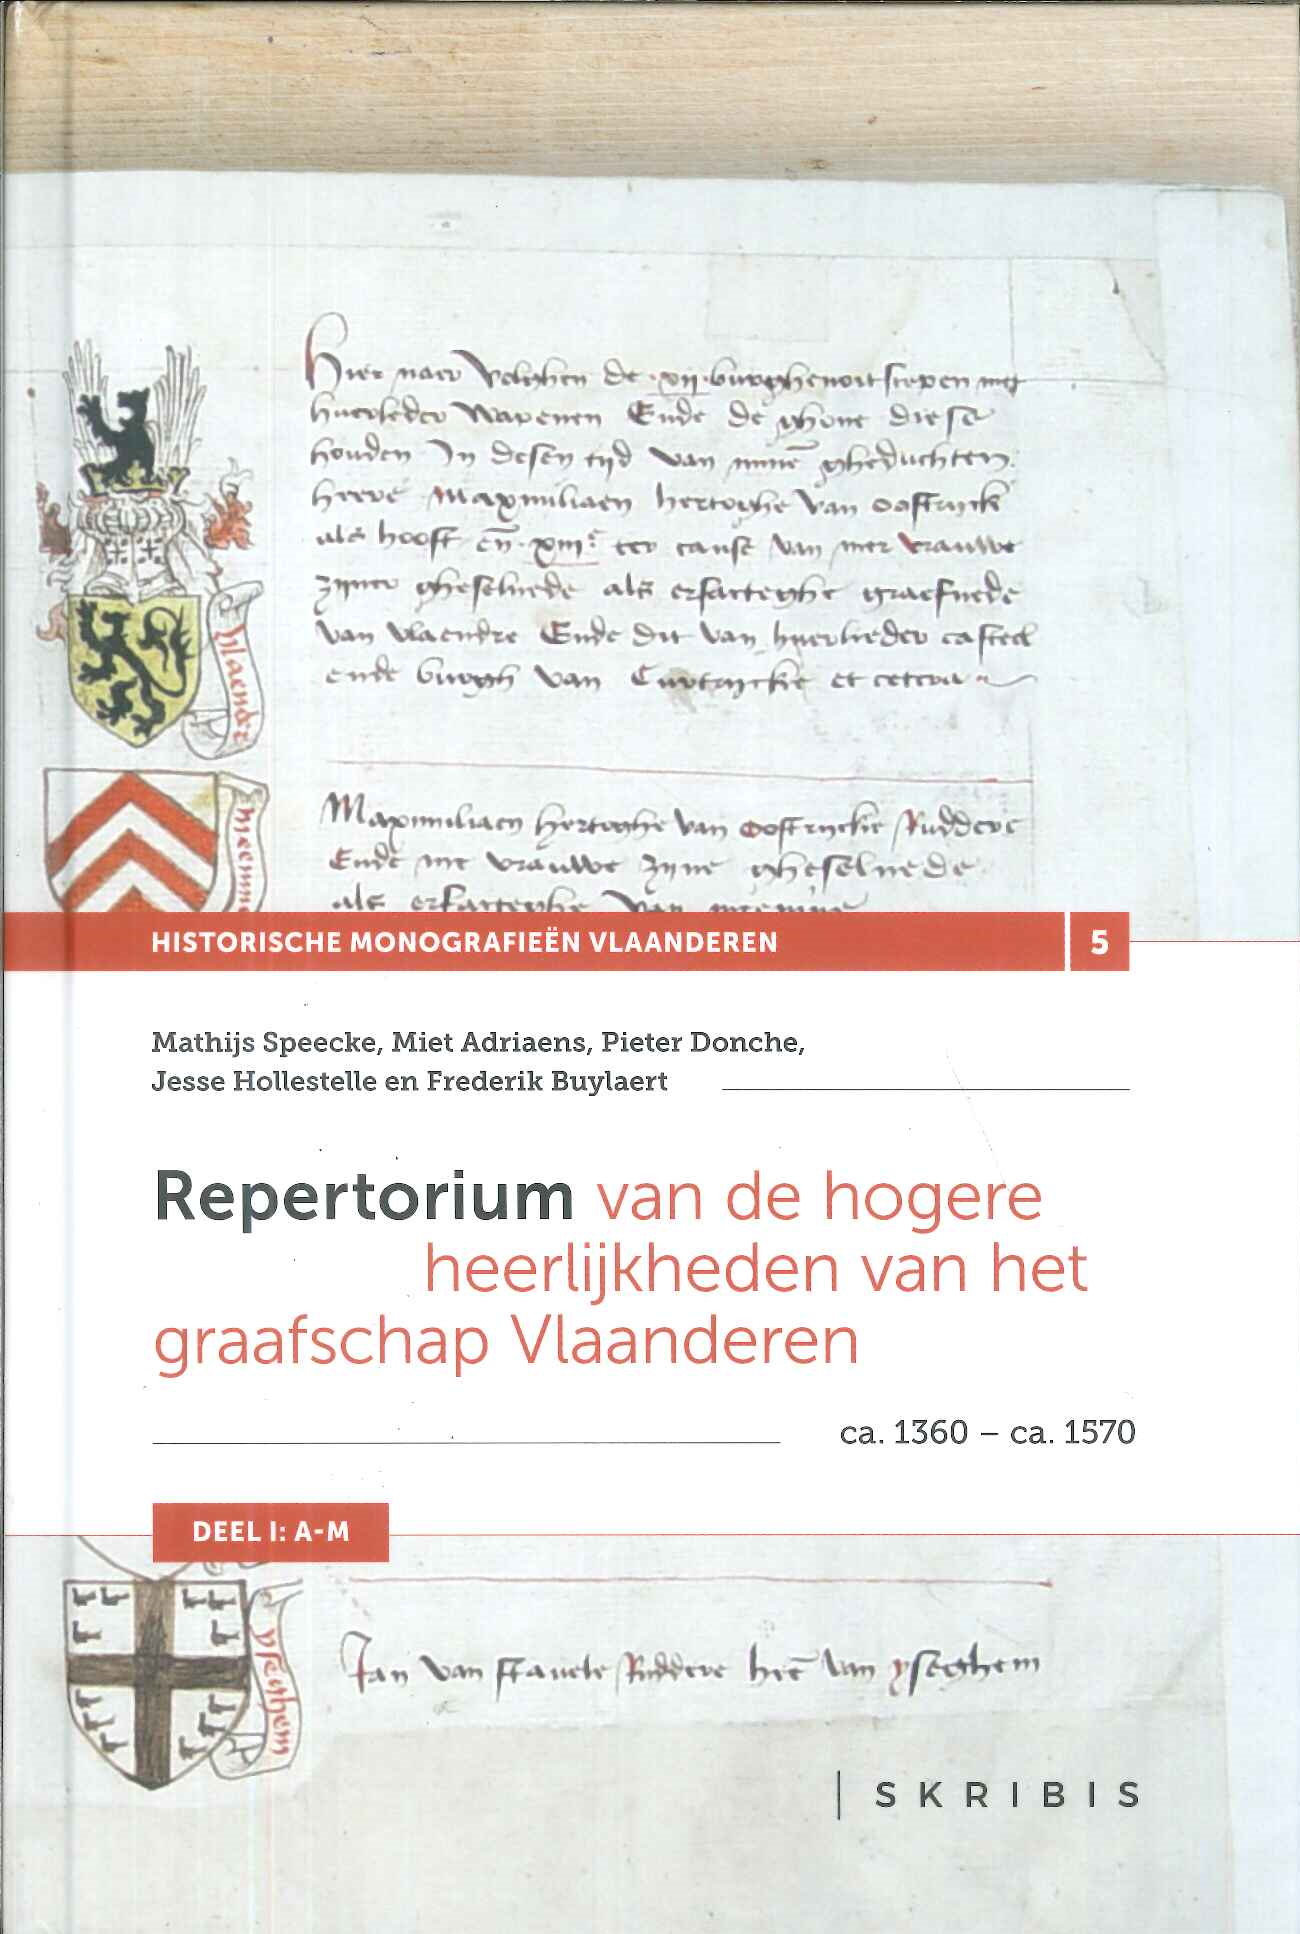 Hier naer volghen de .xij. burghenootscepen met
huerleder wapenen Ende de ghone diese
houden In desen tijd van minen gheduchten
heere Maximiliaen hertoghe van oostrijck
als hooft en .xiije ter cause van mer vrauwe
zijner gheselnede als erfacteghe graefnede
van vlaendre Ende dit van huerlieder casteel
ende burgh van Curtrijcke et cetera
vlaendre
Maximiliaen hertoghe van Oostrijcke Ruddere
Ende me vrauwe zijne gheselnede
als erfacteghe van
HISTORISCHE MONOGRAFIEËN VLAANDEREN 5
Mathijs Speecke, Miet Adriaens, Pieter Donche,
Jesse Hollestelle en Frederik Buylaert
Repertorium van de hogere
heerlijkheden van het
graafschap Vlaanderen
ca. 1360 – ca. 1570
DEEL I: A-M
yseghem
Jan van stavele Ruddere heere van yseghem
| SKRIBIS